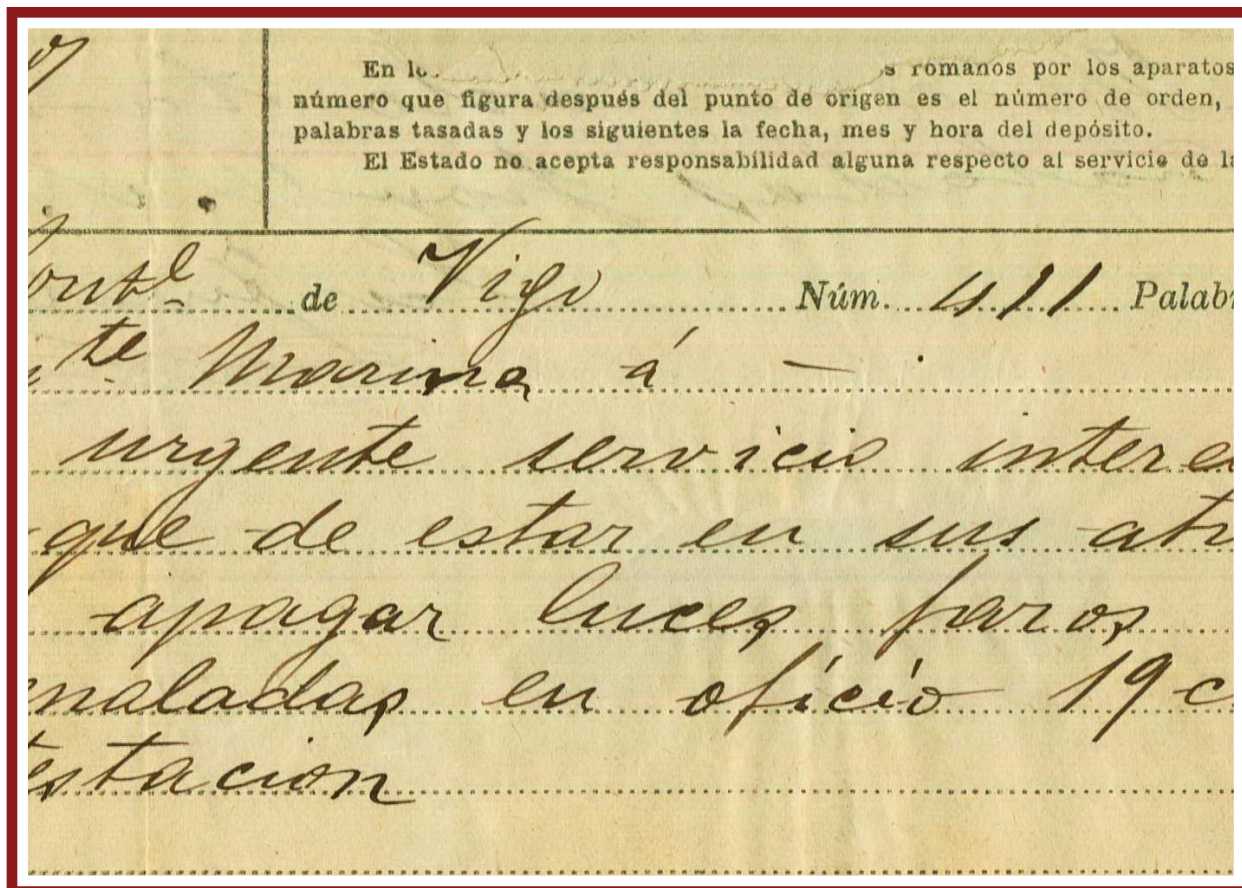 En lo s romanos por los aparatos
número que figura después del punto de origen es el número de orden,
palabras tasadas y los siguientes la fecha, mes y hora del depósito.
El Estado no acepta responsabilidad alguna respecto al servicio de la
de Vigo Núm. 411 Palabr
te Marina á —
urgente servicio intere
que de estar en sus atr
apagar luces faros
ñaladas en oficio 19 c
testacion